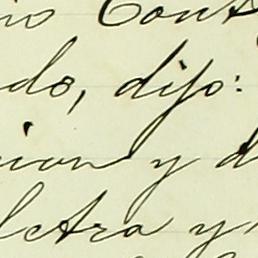 io Cont
do, dijo:
ion y d
letra y